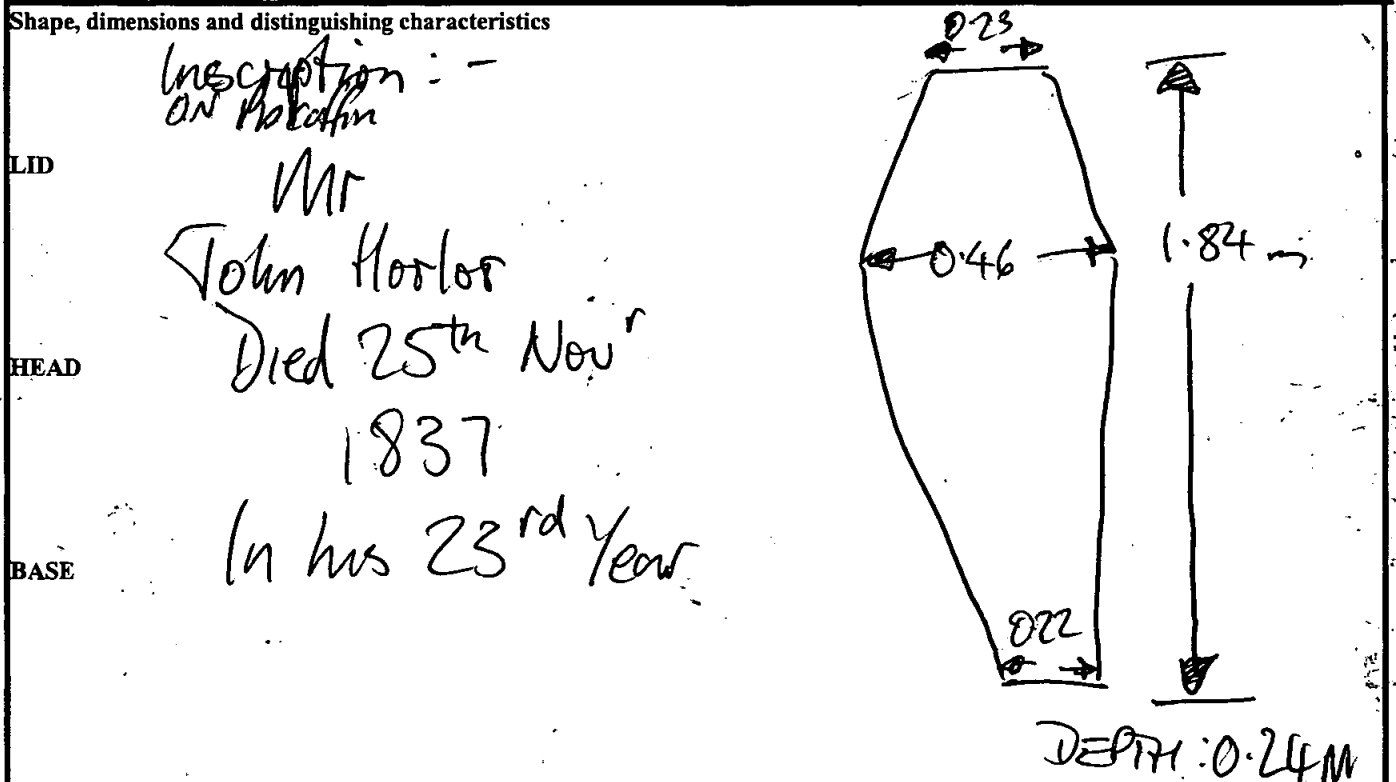 Shape, dimensions and distinguishing characteristics
Inscription :-
ON Pb coffin
LID
Mr
John Horlor
HEAD
Died 25th Novr
1837
BASE
In his 23rd Year
0.23
0.46
1.84 m
0.22
DEPTH: 0.24M